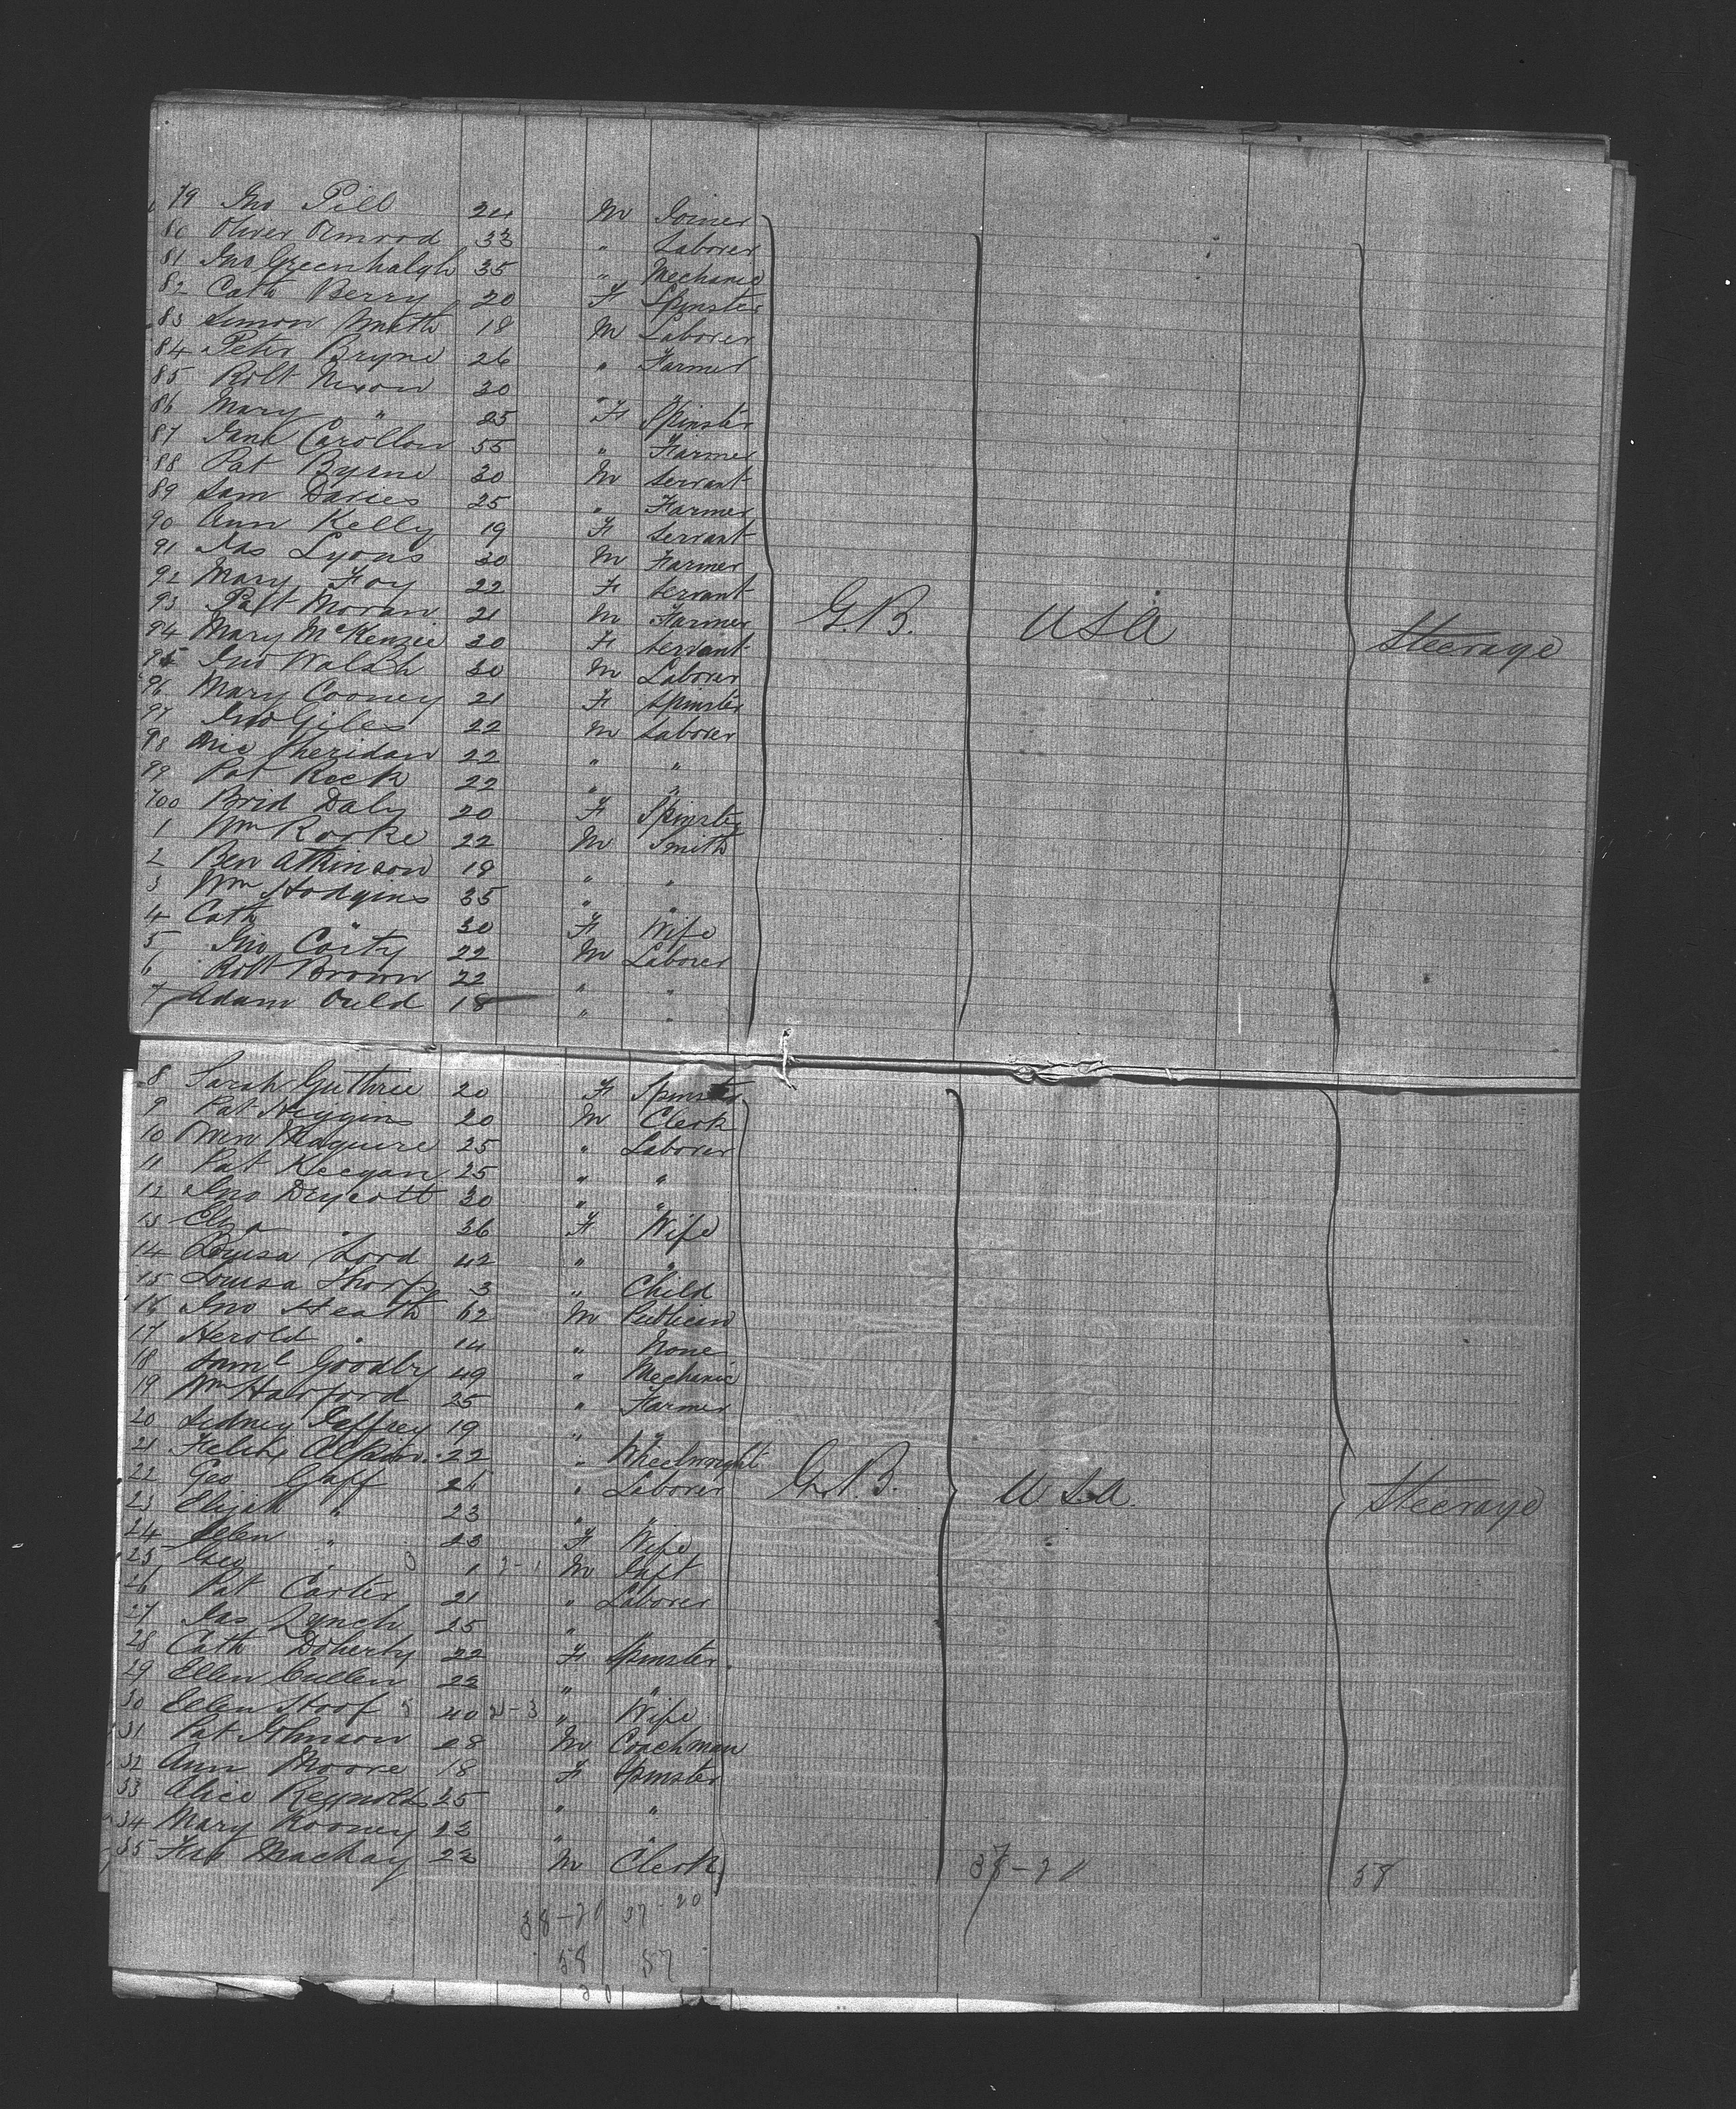 79 Jno Pill 24 M Joiner
80 Oliver Omrod 33 " Laborer
81 Jno Greenhalgh 35 " Mechanic
82 Cath Berry 20 F Spinster
83 Simon Smith 18 M Laborer
84 Peter Bryne 26 " Farmer
85 Robt Nixon 30 " "
86 Mary " 25 F Spinster
87 Carollan 55 " Farmer
88 Pat Byrne 30 M Servant
89 Sam Davies 25 " Farmer
90 Ann Kelly 19 F Servant
91 Jas Lyons 30 M Farmer
92 Mary Foy 22 F Servant
93 Patt Moran 21 M Farmer
94 Mary McKenzie 30 F Servant
95 Jno Walsh 30 M Laborer
96 Mary Cooney 21 F Spinster
97 Jno Giles 22 M Laborer
98 Mic Sheridan 22 " "
99 Pat Keek 22 " "
700 Brid Daly 20 F Spinster
1 Wm Rorke 22 M Smith
2 Ben Atkinson 18 " "
3 Wm Hodgins 35 " "
4 Cath " 30 F Wife
5 Jno Caity 22 M Laborer
6 Robt Brown 22 " "
7 Adam Ould 18 " "
G.B. USA Steerage
8 Sarah Guthrie 20 F Spinster
9 Pat Higgins 20 M Clerk
10 Maguire 25 " Laborer
11 Pat Keegan 25 " "
12 Jno Drycott 30 " "
13 Eliza " 36 F Wife
14 Louisa Lord 42 " "
15 Louisa Thorp 3 " Child
16 Jno Heath 62 M Publican
17 Herold " 14 " None
18 Saml Goodby 49 " Mechanic
19 Wm Harford 25 " Farmer
20 Sidney Jeffrey 19 " "
21 Felix 22 " Wheelwright
22 Geo Goff " Laborer
23 Elijah " 23 " "
24 Ellen " 23 F Wife
25 Geo " 1 M Inft
26 Pat Carter 21 " Laborer
27 Jas Lynch 25 " "
28 Cath Doherty 22 F Spinster
29 Ellen Cullen 22 " "
30 Ellen Hoof 40 " Wife
31 Pat Johnson 28 M Coachman
32 Ann Moore 18 F Spinster
33 Alice Reynolds 25 " "
34 Mary Rooney 23 " "
35 Mackay 22 M Clerk
G.B. USA Steerage
58
38-20 37-20
58 57